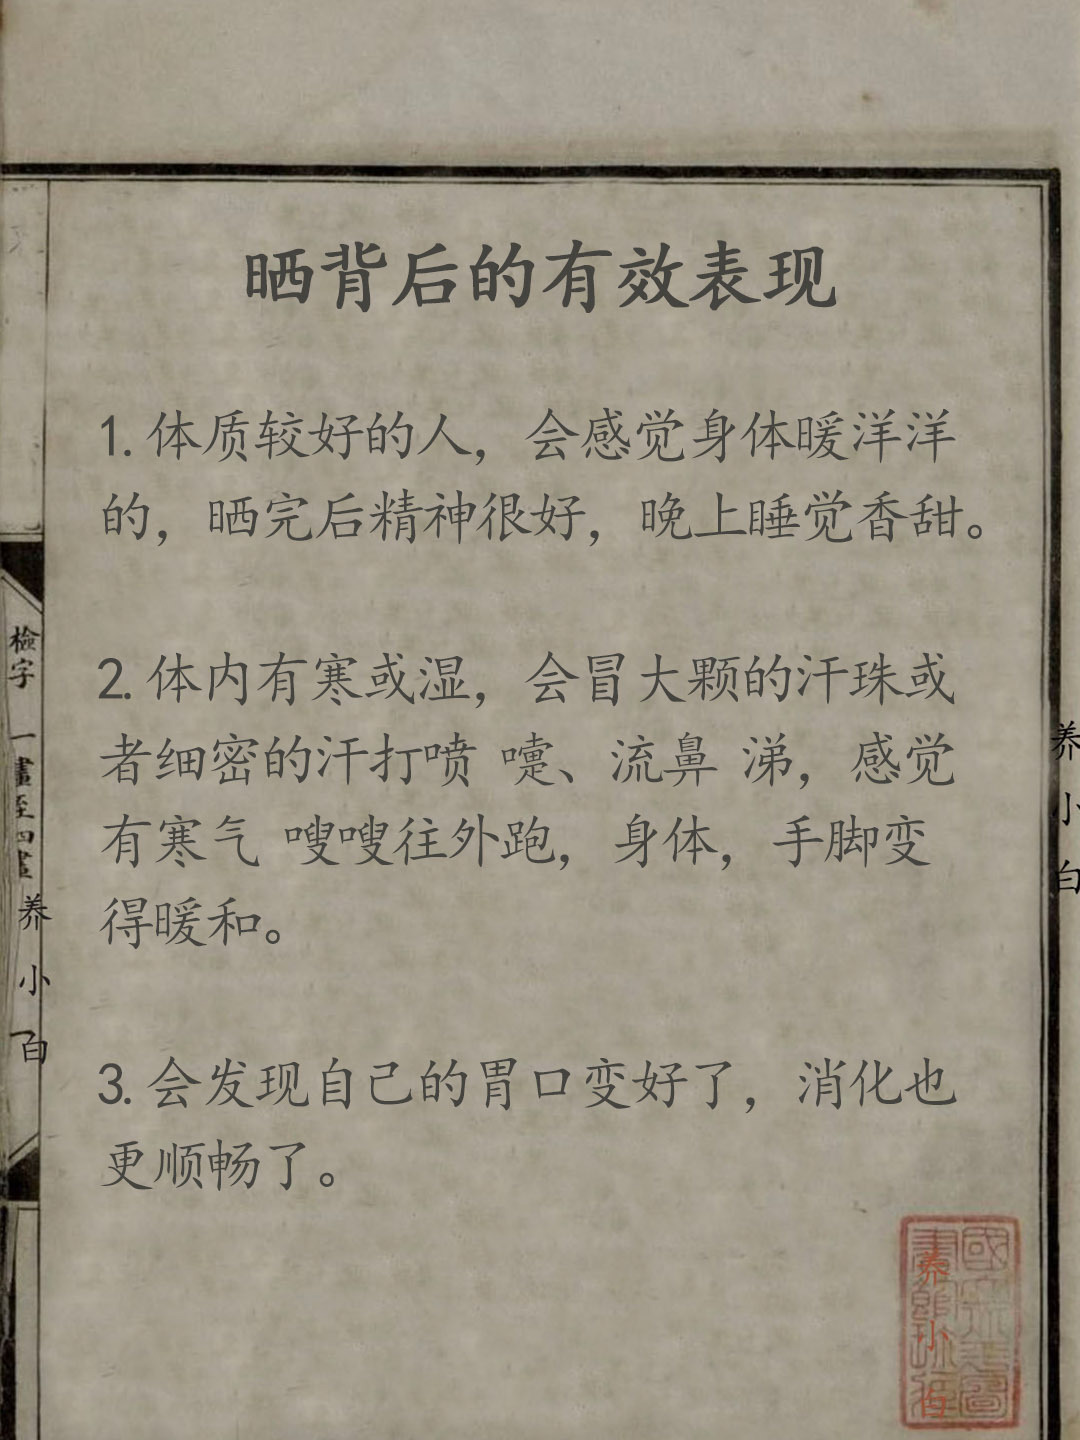 晒背后的有效表现
1. 体质较好的人，会感觉身体暖洋洋
的，晒完后精神很好，晚上睡觉香甜。
2. 体内有寒或湿，会冒大颗的汗珠或
者细密的汗打喷 嚏、流鼻 涕，感觉
有寒气 嗖嗖往外跑，身体，手脚变
得暖和。
3. 会发现自己的胃口变好了，消化也
更顺畅了。
檢字
一畫至四畫
养小白
养小白
养小白